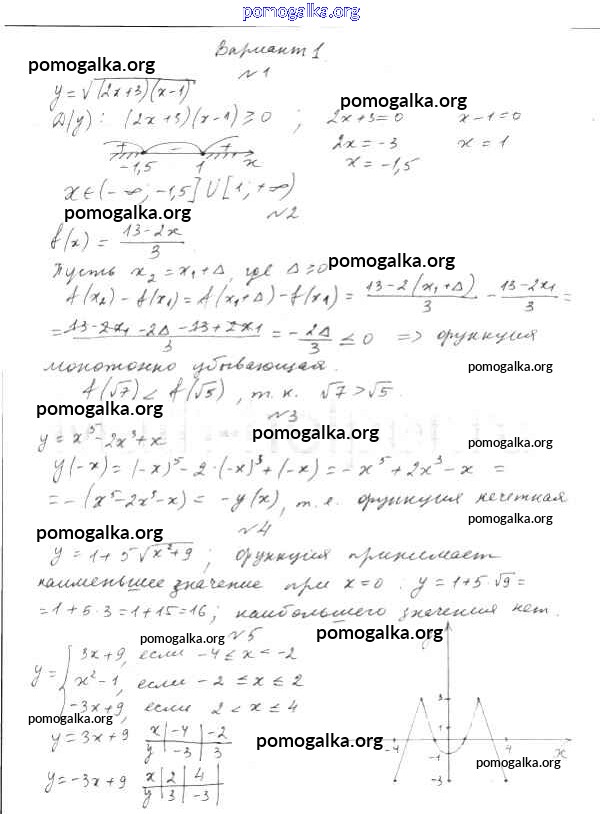 pomogalka.org
Вариант 1
pomogalka.org
№1
y = √((2x+3)(x-1))
pomogalka.org
D(y): (2x+3)(x-1) ≥ 0 ; 2x+3=0 x-1=0
2x = -3 x = 1
x = -1,5
+ - +
-1,5 1 x
x ∈ (-∞; -1,5] ∪ [1; +∞)
pomogalka.org
№2
f(x) = (13-2x)/3
pomogalka.org
Пусть x₂ = x₁ + Δ, где Δ ≥ 0
f(x₂) - f(x₁) = f(x₁+Δ) - f(x₁) = (13-2(x₁+Δ))/3 - (13-2x₁)/3 =
= (13-2x₁-2Δ-13+2x₁)/3 = -2Δ/3 ≤ 0 => функция
pomogalka.org
монотонно убывающая.
f(√7) < f(√5), т.к. √7 > √5.
pomogalka.org
№3
pomogalka.org
y = x⁵ - 2x³ + x
pomogalka.org
y(-x) = (-x)⁵ - 2·(-x)³ + (-x) = -x⁵ + 2x³ - x =
= -(x⁵-2x³-x) = -y(x), т.е. функция нечетная
pomogalka.org
pomogalka.org
№4
y = 1+5√(x²+9) ; функция принимает
наименьшее значение при x=0 : y = 1+5·√9 =
= 1+5·3 = 1+15 = 16; наибольшего значения нет.
pomogalka.org
pomogalka.org
№5
y = { 3x+9, если -4 ≤ x < -2
x²-1, если -2 ≤ x ≤ 2
-3x+9, если 2 < x ≤ 4
pomogalka.org
y = 3x+9 x | -4 | -2
y | -3 | 3
pomogalka.org
pomogalka.org
y = -3x+9 x | 2 | 4
y | 3 | -3
y
3
1
-4 4 x
-3